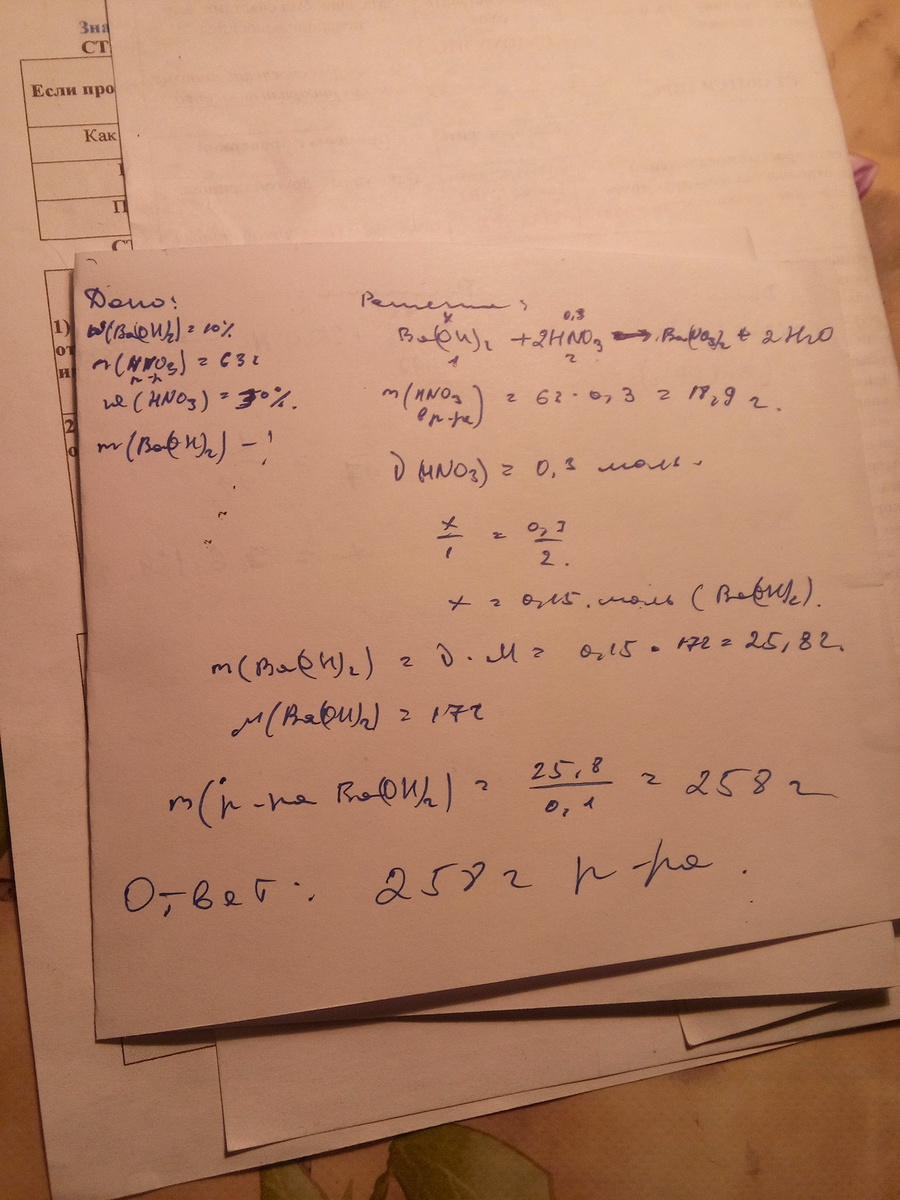 Зна
СТ
Если про
Как
П
СТ
1)
от
2
о
Дано:
w(Ba(OH)2) = 10%
m(HNO3) = 63г
р-р
w(HNO3) = 30%.
m(Ba(OH)2) -
Решение:
x 0,3
Ba(OH)2 + 2HNO3 → Ba(NO3)2 + 2H2O
1 2
m(HNO3 в р-ра) = 63 · 0,3 = 18,9 г.
ν(HNO3) = 0,3 моль.
x/1 = 0,3/2.
x = 0,15 моль (Ba(OH)2).
m(Ba(OH)2) = ν · M = 0,15 · 172 = 25,8г.
M(Ba(OH)2) = 172
m(р-ра Ba(OH)2) = 25,8/0,1 = 258 г
Ответ: 258 г р-ра.